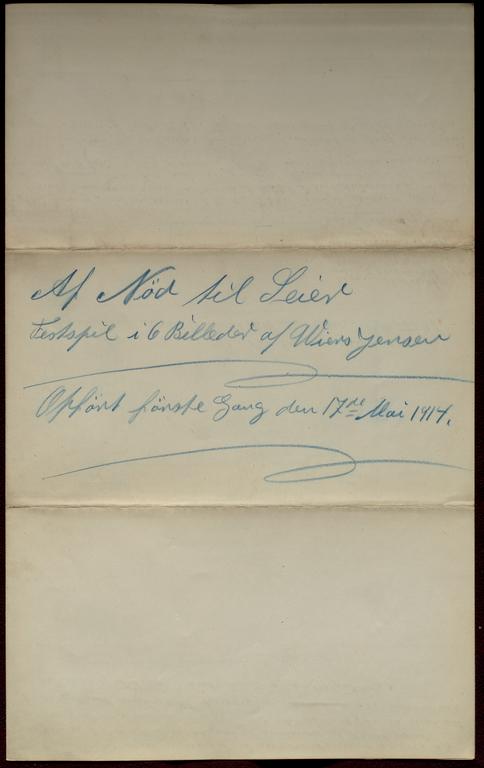 Af Nød til Seier
Festspil i 6 Billeder af Wiers Jensen
Opført første Gang den 17de Mai 1914.